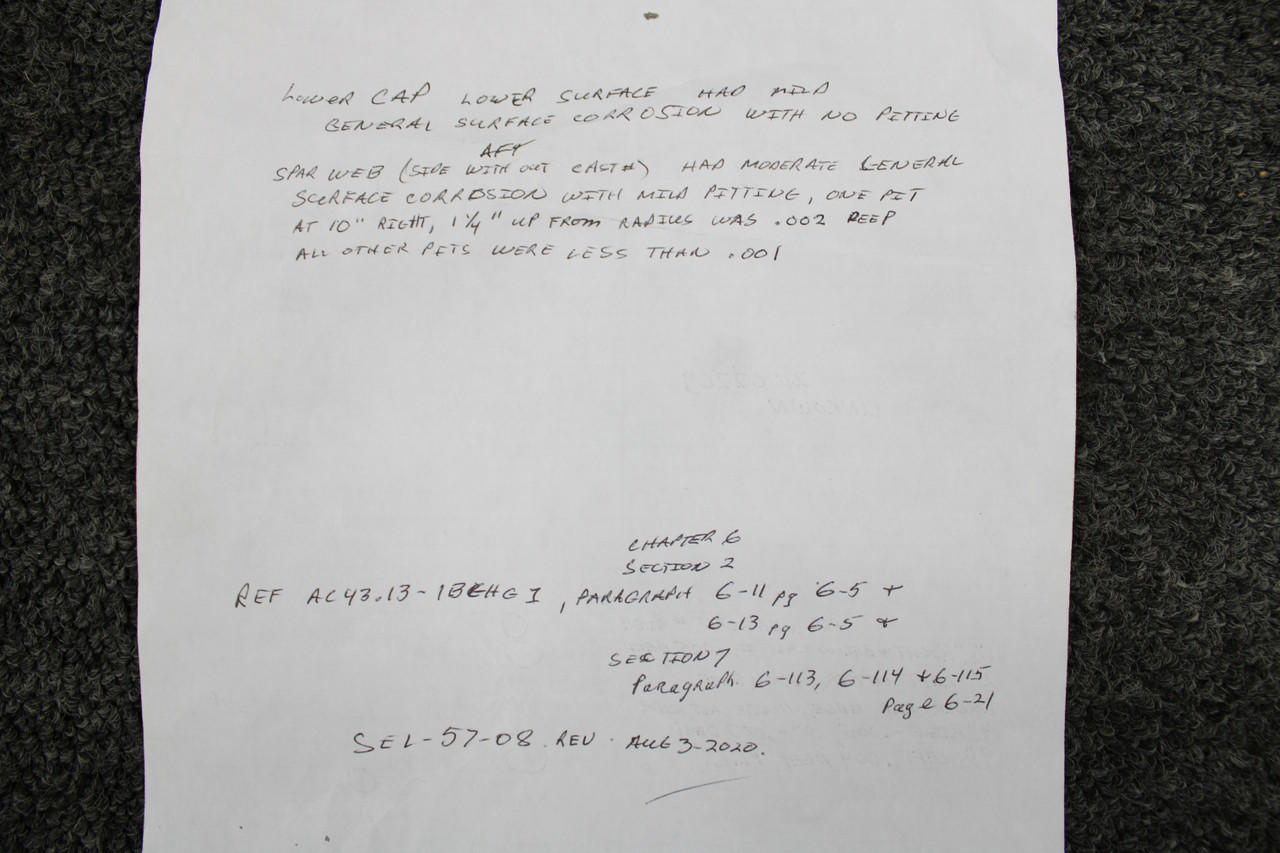 LOWER CAP LOWER SURFACE HAD MILD
GENERAL SURFACE CORROSION WITH NO PITTING
AFT
SPAR WEB (SIDE WITH OUT CAST#) HAD MODERATE GENERAL
SURFACE CORROSION WITH MILD PITTING, ONE PIT
AT 10" RIGHT, 1 1/4" UP FROM RADIUS WAS .002 DEEP
ALL OTHER PITS WERE LESS THAN .001
CHAPTER 6
SECTION 2
REF AC43.13-1B CHG 1, PARAGRAPH 6-11 pg 6-5 +
6-13 pg 6-5 +
SECTION 7
Paragraph 6-113, 6-114 + 6-115
Page 6-21
SEL-57-08 REV. AUG 3-2020.